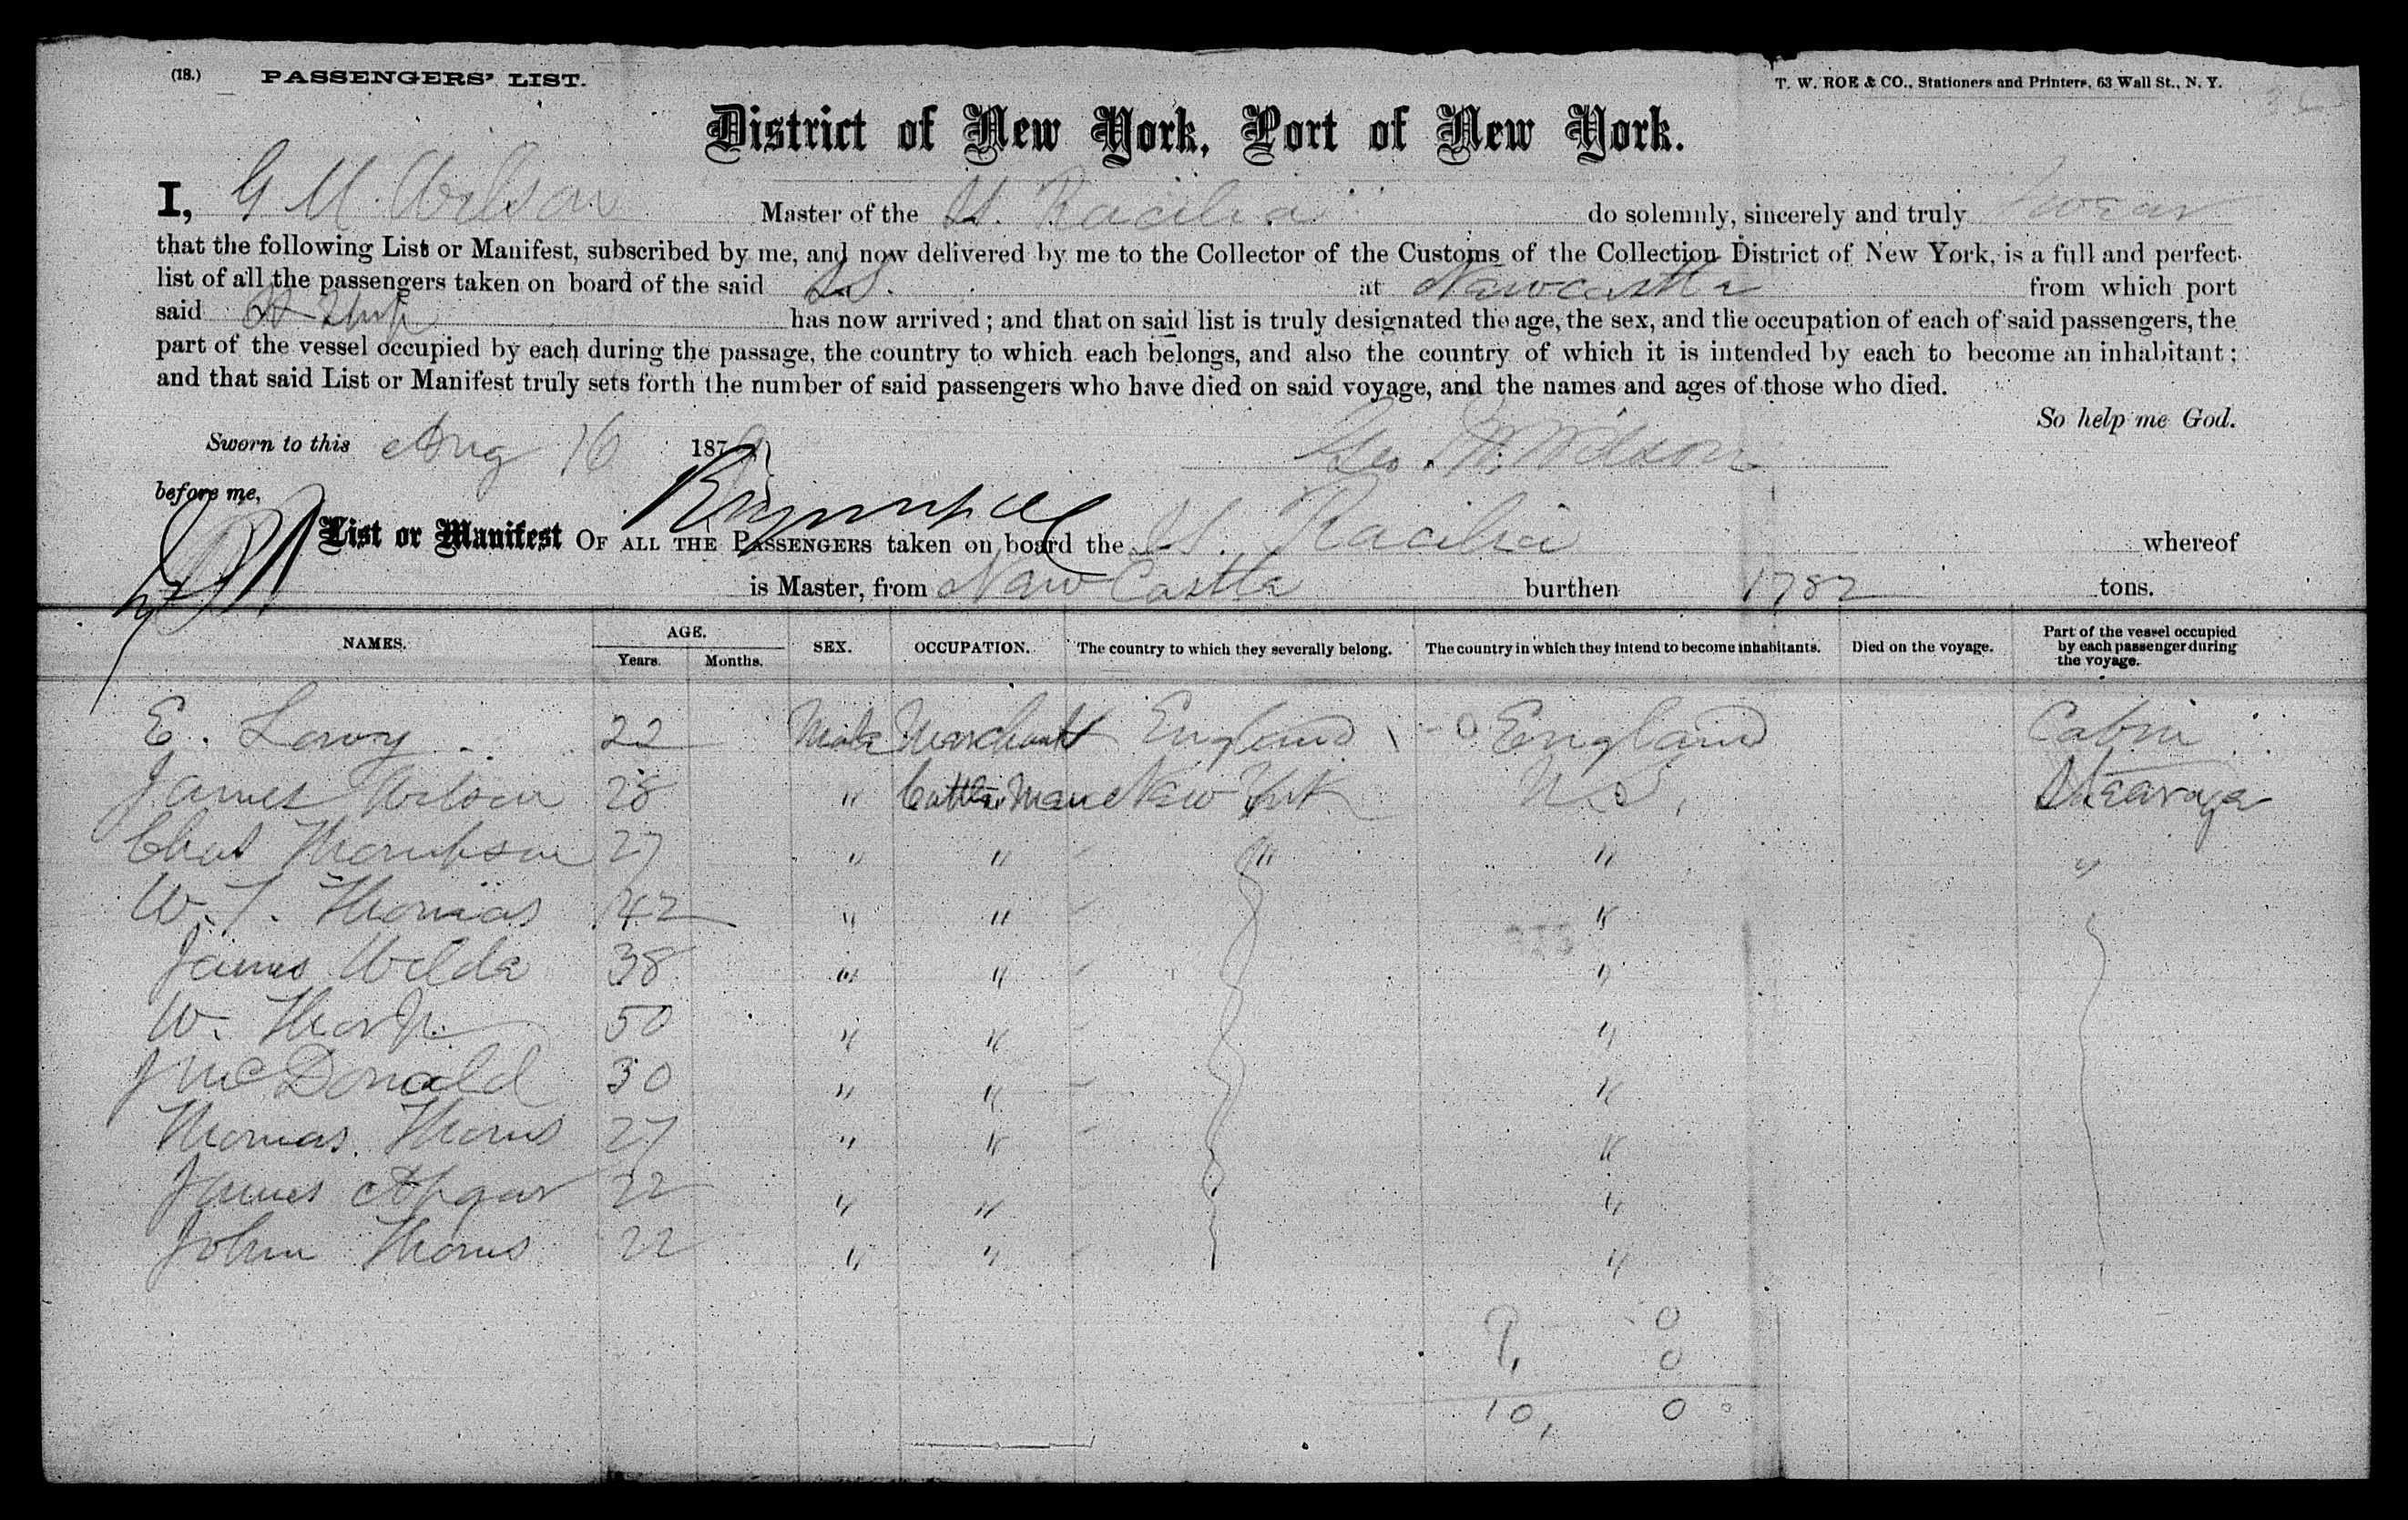 (18.) PASSENGERS' LIST. T. W. ROE & CO., Stationers and Printers, 63 Wall St., N. Y.
District of New York, Port of New York.
I, G M. Wilson Master of the SS. Racilia do solemnly, sincerely and truly swear
that the following List or Manifest, subscribed by me, and now delivered by me to the Collector of the Customs of the Collection District of New York, is a full and perfect
list of all the passengers taken on board of the said SS. at Newcastle from which port
said has now arrived; and that on said list is truly designated the age, the sex, and the occupation of each of said passengers, the
part of the vessel occupied by each during the passage, the country to which each belongs, and also the country of which it is intended by each to become an inhabitant;
and that said List or Manifest truly sets forth the number of said passengers who have died on said voyage, and the names and ages of those who died.
So help me God.
Sworn to this Aug 16 187 Geo. M. Wilson
before me,
List or Manifest OF ALL THE PASSENGERS taken on board the SS. Racilia whereof
is Master, from New Castle burthen 1782 tons.
NAMES. AGE. Years. Months. SEX. OCCUPATION. The country to which they severally belong. The country in which they intend to become inhabitants. Died on the voyage. Part of the vessel occupied by each passenger during the voyage.
E. Lowy 22 Male Merchant England England Cabin
James Wilson 28 " Cattle Man New York U S. Stearage
Chas Thompson 27 " " " " "
W. T. Thomas 42 " " "
James Wilde 38 " " "
W. Thorp 50 " " "
J McDonald 30 " " "
Thomas Thoms 27 " " "
James Apgar 22 " " "
John Thoms 22 " " "
9, 0
0
10, 0